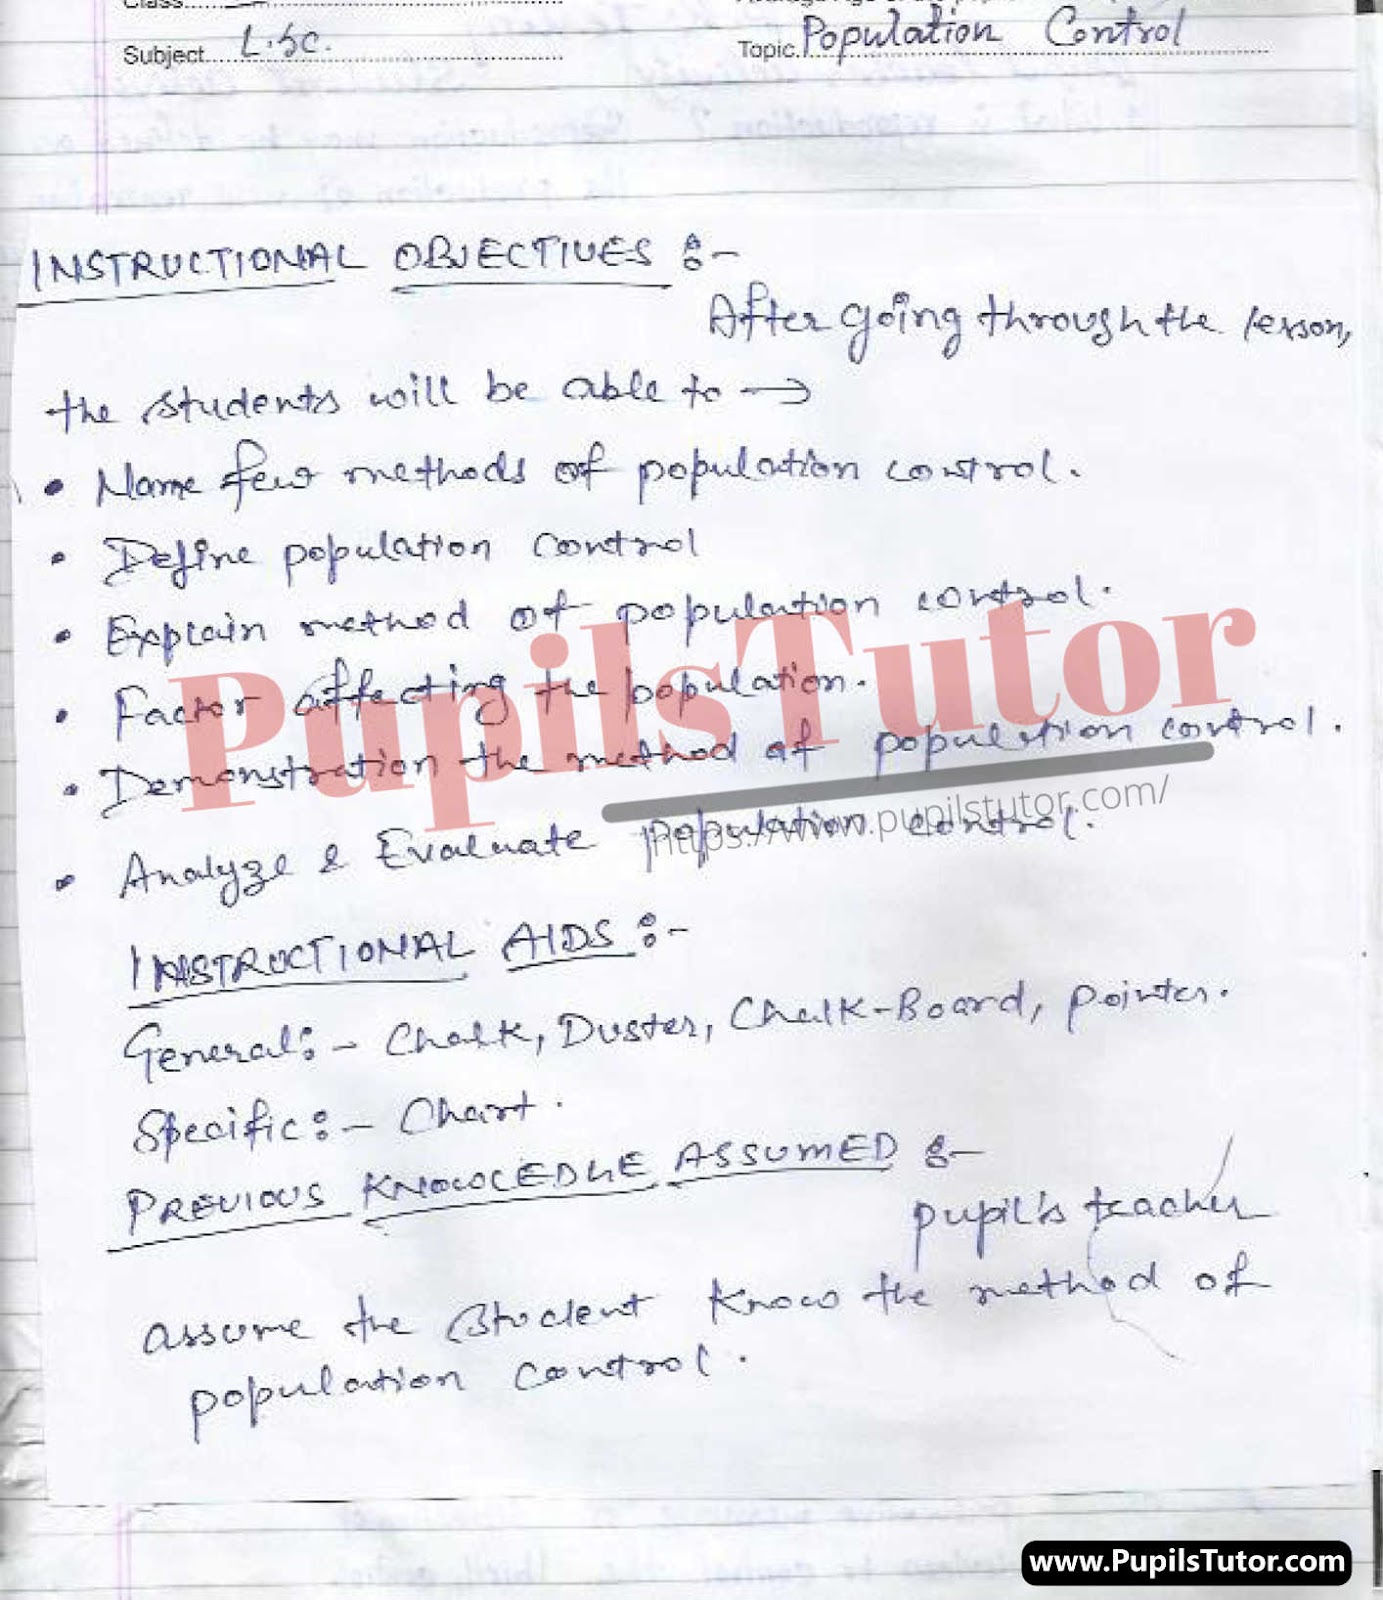 Subject L.Sc.
Topic Population Control
INSTRUCTIONAL OBJECTIVES :-
After going through the lesson,
the students will be able to →
• Name few methods of population control.
• Define population control
• Explain method of population control.
• Factor affecting the population.
• Demonstration the method of population control.
• Analyze & Evaluate population control.
PupilsTutor
https://www.pupilstutor.com/
INSTRUCTIONAL AIDS :-
General :- Chalk, Duster, Chalk-Board, pointer.
Specific :- Chart.
PREVIOUS KNOWLEDGE ASSUMED :-
pupil's teacher
assume the student know the method of
population control.
www.PupilsTutor.com